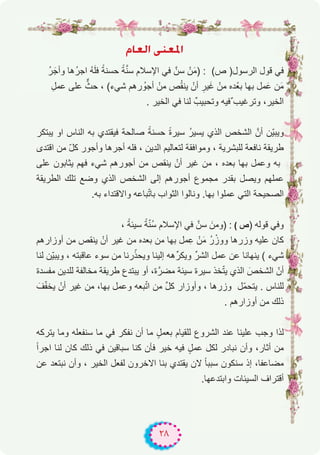 المعنى العام
في قول الرسول( ص) : (مَنْ سنَّ في الإسلام سنَّةً حسنةً فَلَه اجرُها وأجَرُ
مَن عمل بها بعْده مِن غيرِ أنْ ينقُص من أجوُرهم شيء) ، حثٌّ على عملِ
الخير، وترغيب ٌفيه وتحبيبٌ لنا في الخير .
ويبيّن أنَّ الشخص الذي يسيرُ سيرةً حسنةً صالحة فيقتدي به الناس او يبتكر
طريقة نافعة للبشرية ، وموافقة لتعاليم الدين ، فله أجرها وأجور كلّ من اقتدى
به وعمل بها بعده ، من غير أنْ ينقص من أجورهم شيء فهم يثابون على
عملهم ويصل بقدر مجموع أجورهم إلى الشخص الذي وضع تلك الطريقة
الصحيحة التي عملوا بها. ونالوا الثواب باتّباعه والاقتداء به.
وفي قوله (ص ) : (ومن سنَّ في الإسلام سُنَّةً سيئةً ،
كان عليه وزرها ووزْرُ مَنْ عمِل بها من بعده من غير أنْ ينقص من أوزارهم
شيء ) ينهانا عن عمل الشرِّ ويكرِّهه إلينا ويحذِّرنا من سوء عاقبته ، ويبيّن لنا
أنَّ الشخصَ الذي يتَّخذ سيرة سيئة مضرَّة، أو يبتدع طريقة مخالفة للدين مفسدة
للناس . يتحمّل وزرها ، وأوزار كلِّ من اتّبعه وعمل بها، من غير أنْ يخفَّفَ
ذلك من أوزارهم .
لذا وجب علينا عند الشروع للقيام بعملٍ ما أن نفكر في ما سنفعله وما يتركه
من أثار، وأن نبادر لكل عمل فيه خير فأن كنا سباقين في ذلك كان لنا اجراً
مضاعفا، إذ سنكون سبباً لان يقتدي بنا الاخرون لفعل الخير ، وأن نبتعد عن
أقتراف السيئات وابتدعها.
٢٨